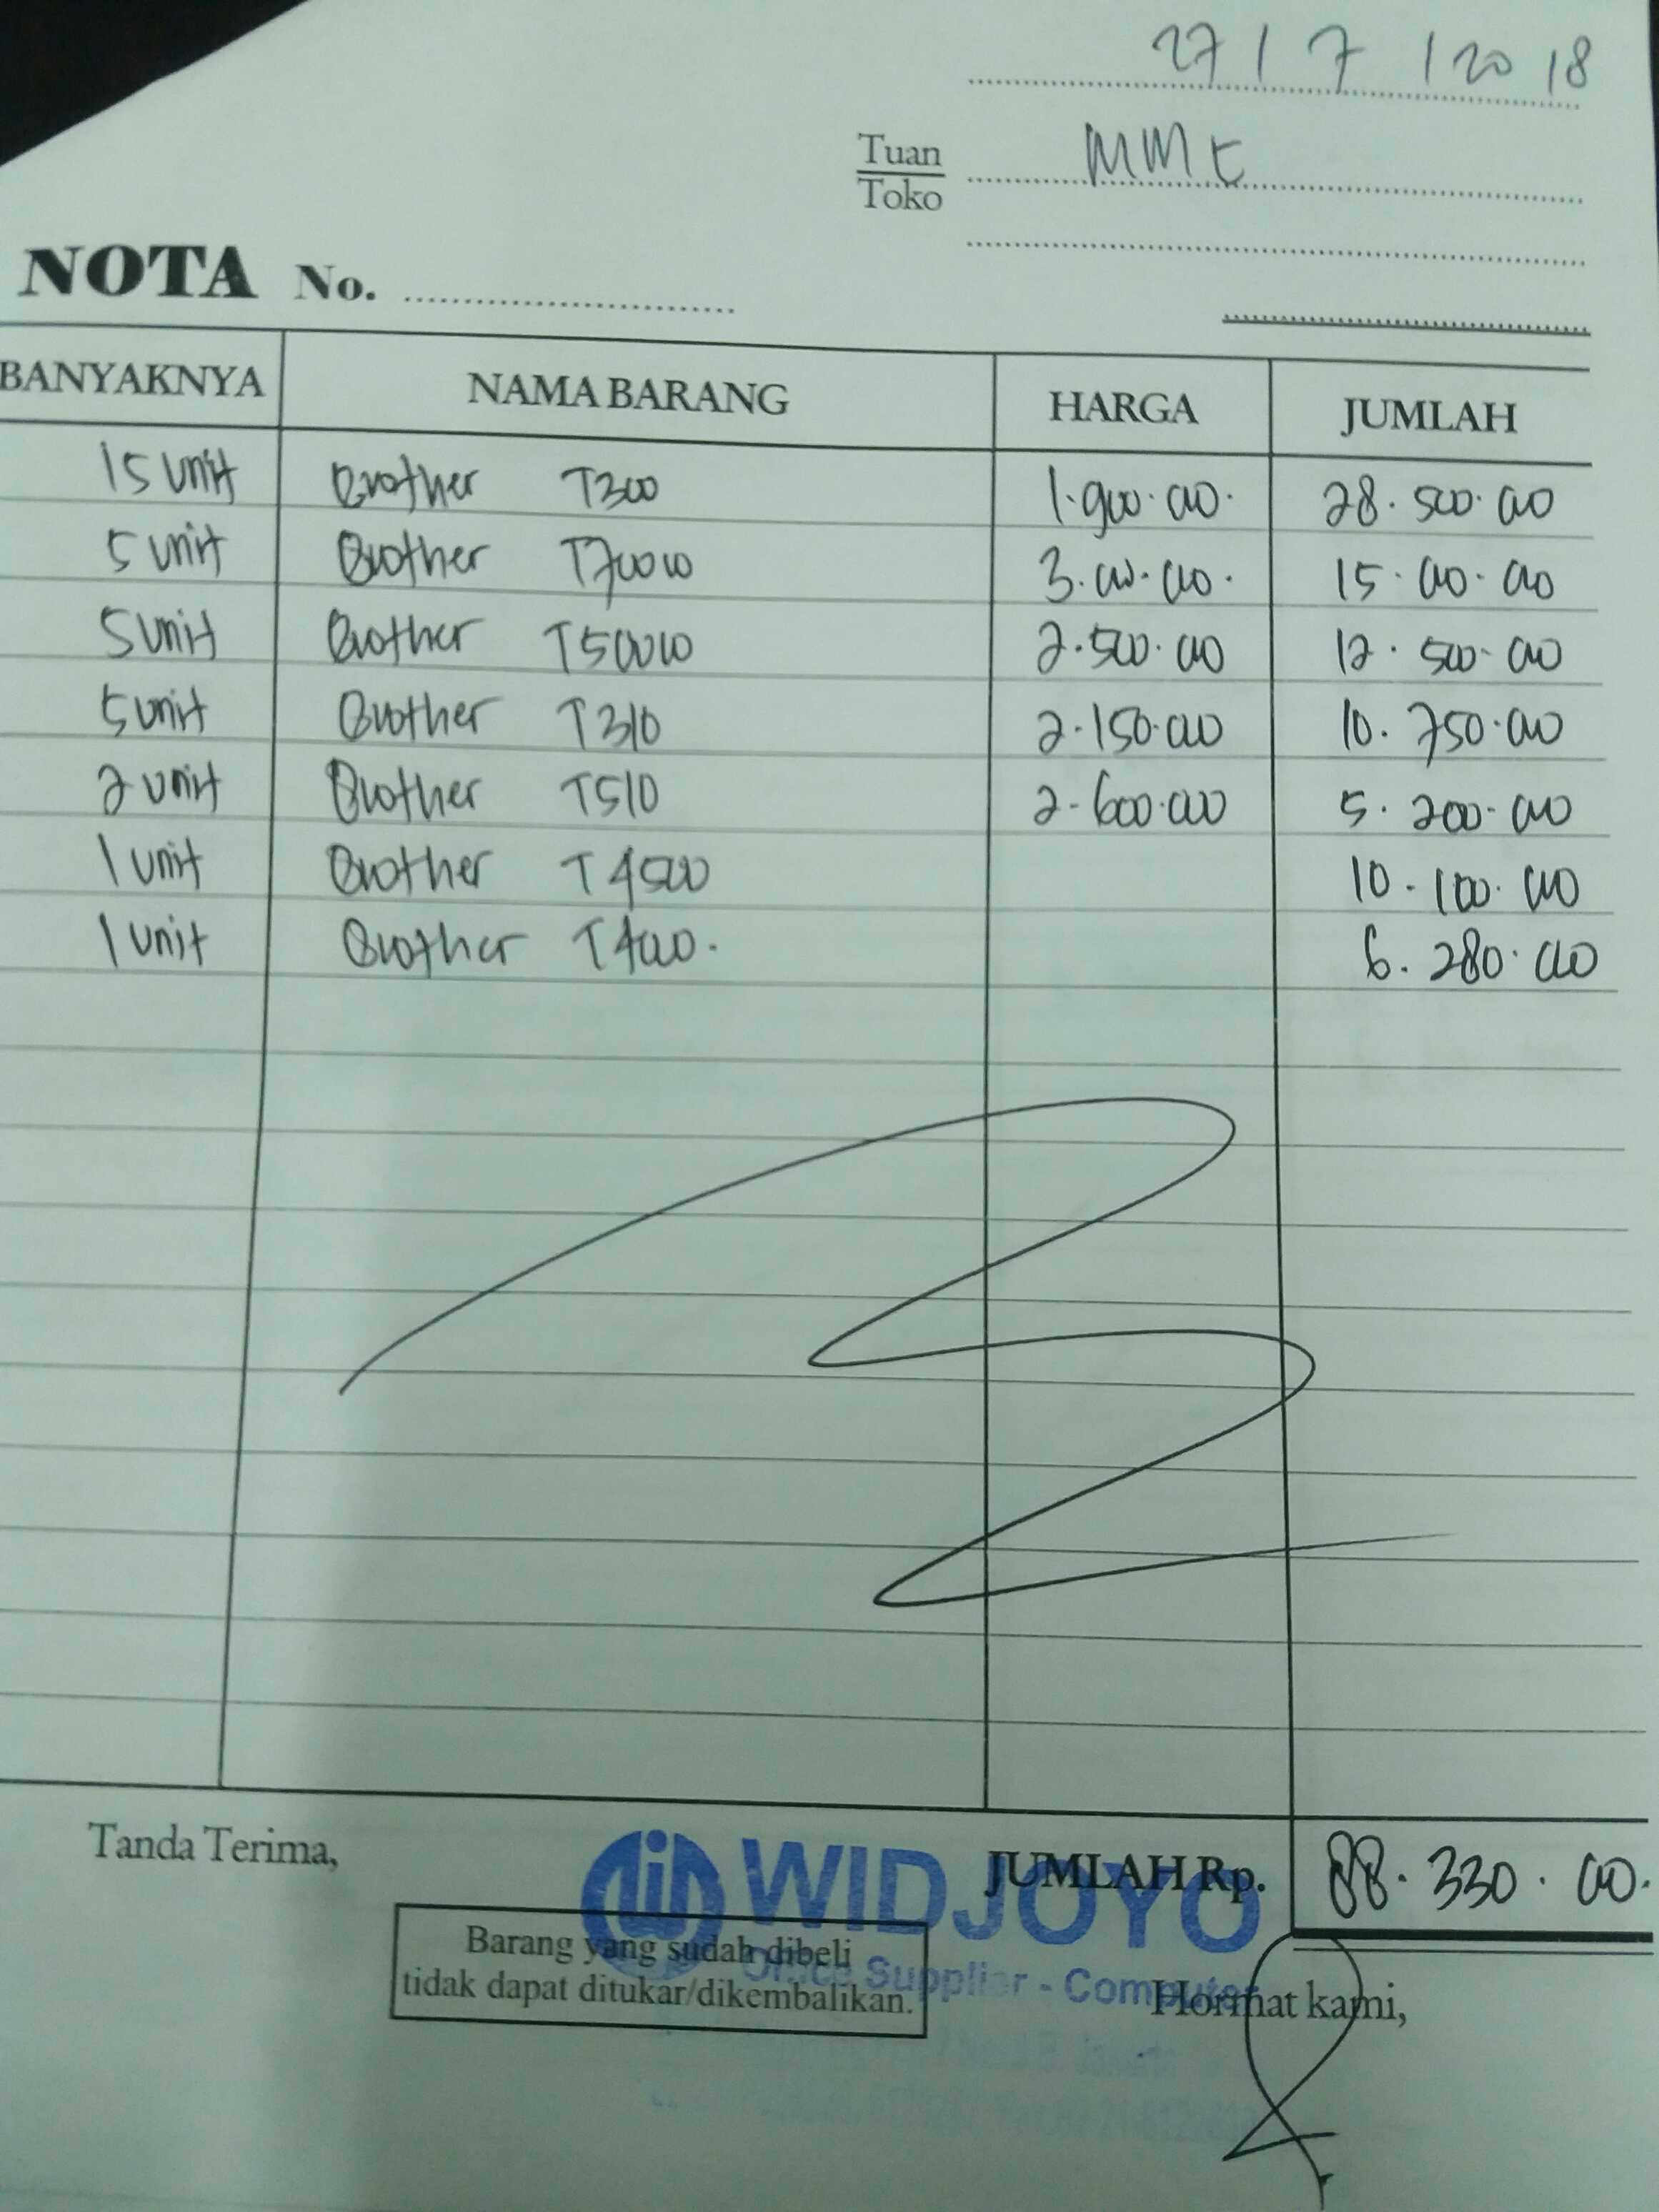 27 / 7 / 20 18
Tuan
Toko
NOTA No.
BANYAKNYA NAMA BARANG HARGA JUMLAH
15 unit Brother T300 1.900.000. 28.500.000
5 unit Brother 3.000.000. 15.000.000
5 unit Brother 2.500.000 12.500.000
5 unit Brother T310 2.150.000 10.750.000
2 unit Brother T510 2.600.000 5.200.000
1 unit Brother T4500 10.100.000
1 unit Brother 6.280.000
Tanda Terima,
JUMLAH Rp. 88.330.000.
WIDJOYO
Office Supplier - Computer
Barang yang sudah dibeli
tidak dapat ditukar/dikembalikan.
Hormat kami,